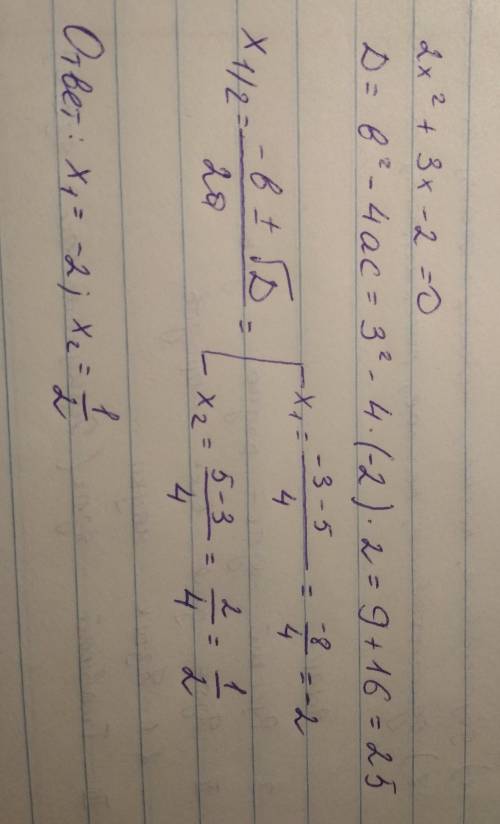 2x² + 3x - 2 = 0
D = b² - 4ac = 3² - 4·(-2)·2 = 9 + 16 = 25
x₁/₂ = (-b ± √D)/2a = [ x₁ = (-3-5)/4 = -8/4 = -2
x₂ = (5-3)/4 = 2/4 = 1/2
Ответ: x₁ = -2; x₂ = 1/2